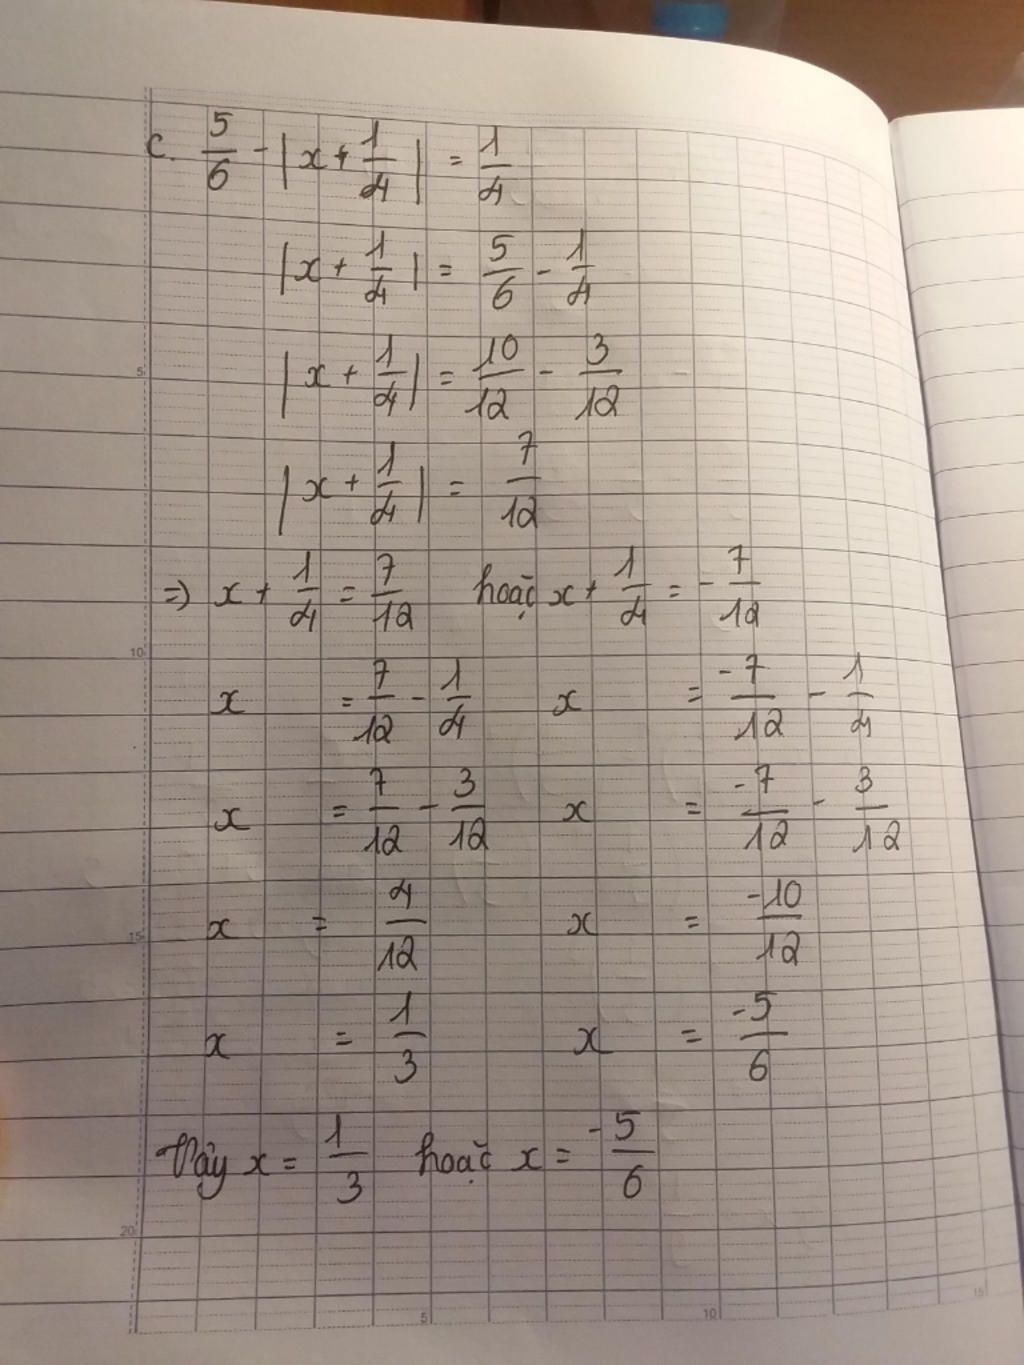 c. 5/6 - |x + 1/4| = 1/4
|x + 1/4| = 5/6 - 1/4
|x + 1/4| = 10/12 - 3/12
|x + 1/4| = 7/12
=> x + 1/4 = 7/12 hoặc x + 1/4 = -7/12
x = 7/12 - 1/4 x = -7/12 - 1/4
x = 7/12 - 3/12 x = -7/12 - 3/12
x = 4/12 x = -10/12
x = 1/3 x = -5/6
Vậy x = 1/3 hoặc x = -5/6
5
10
15
20
5 10 15